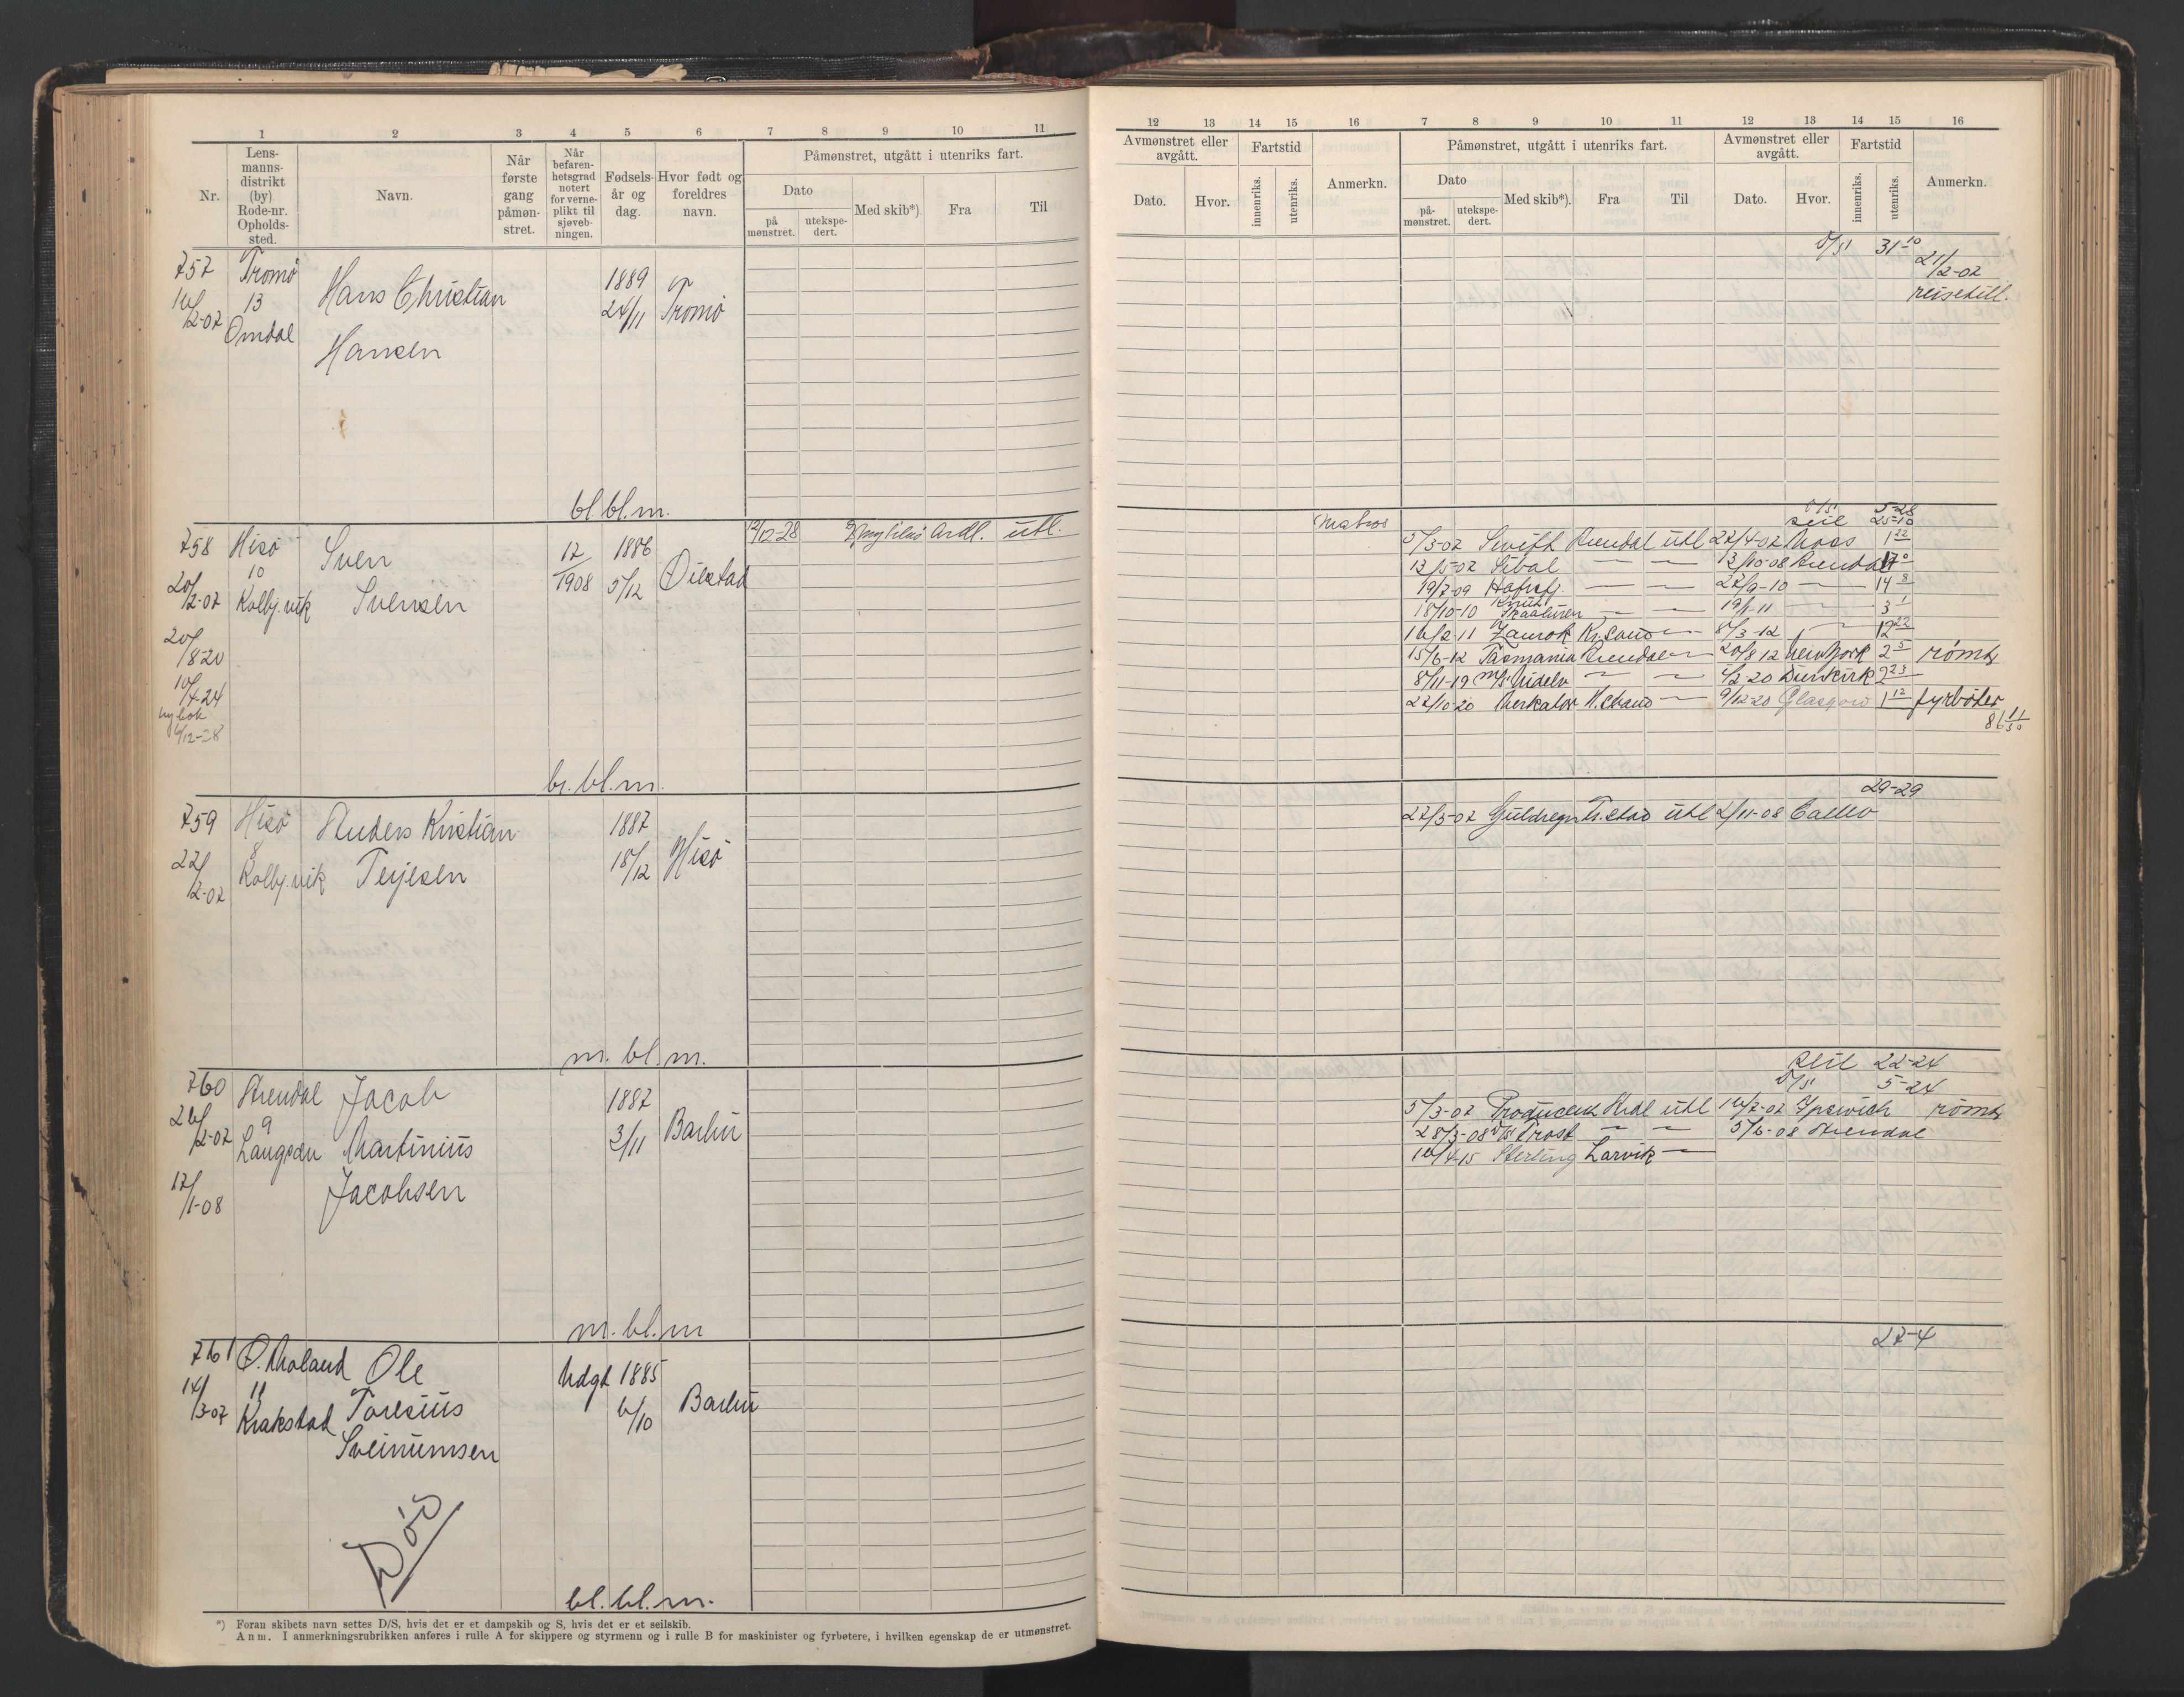 1 2 3 4 5 6 7 8 9 10 11
Nr.
Lens-
manns-
distrikt
(by)
Rode-nr.
Opholds-
sted.
Navn.
Når
første
gang
påmøn-
stret.
Når
befaren-
hetsgrad
notert
for verne-
plikt til
sjøveb-
ningen.
Fødsels-
år og
dag.
Hvor født og
foreldres
navn.
Påmønstret, utgått i utenriks fart.
Dato
på
mønstret.
utekspe-
dert.
Med skib*)
Fra
Til
757
16/2-07
Tromø
13
Omdal
Hans Christian
Hansen
1889
24/11
Tromø
bl. bl. m.
758
20/2-07
20/8-20
10/4-24
ny bok
6/12-28
Hisø
10
Kolbj.vik
Sven
Svensen
17/1908
1886
5/12
Øiestad
12/12-28 Ardl. utl.
bl. bl. m.
759
22/2-07
Hisø
8
Kolbj.vik
Anders Kristian
Terjesen
1887
18/12
Hisø
m. bl. m.
760
26/2-07
17/1-08
Arendal
9
Langsæ
Jacob
Martinius
Jacobsen
1887
3/11
Barbu
m. bl. m
761
14/3-07
Ø. Moland
11
Krakstad
Ole
Toresius
Sveinumsen
Udgt 1885
6/10
Barbu
Død
bl. bl. m.
*) Foran skibets navn settes D/S, hvis det er et dampskib og S, hvis det er et seilskib.
Anm. I anmerkningsrubrikken anføres i rulle A for skippere og styrmenn og i rulle B for maskinister og fyrbøtere, i hvilken egenskap de er utmønstret.
12 13 14 15 16 7 8 9 10 11 12 13 14 15 16
Avmønstret eller
avgått.
Dato.
Hvor.
Fartstid
innenriks.
utenriks.
Anmerkn.
Påmønstret, utgått i utenriks fart.
Dato
på-
mønstret.
utekspe-
dert.
Med skib*).
Fra
Til
Avmønstret eller
avgått.
Dato.
Hvor.
Fartstid
innenriks.
utenriks.
Anmerkn.
D/S 31-10
21/2-07
reisetill.
Matros
D/S 5-28
seil 25-10
5/3-07 Swift Arendal utl 27/4-07 Moss 1 22
13/5-07 Sibal — — 13/10-08 Arendal 17 0
19/7-09 Hafrsfj. — — 27/9-10 — 14 8
18/10-10 Knut Skaaluren — — 19/1-11 — 3 1
16/2 11 Zamok Kr.sand — 8/3-12 — 12 22
15/6-12 Tasmania Arendal — 20/8 12 New York 2 5 rømt
8/11-19 M/S Nidelv — — 1/2-20 Dunkirk 2 23
27/10-20 Merkator — 9/12-20 Glasgow 1 12 fyrbøter
29-29
27/3-07 Guldregn Fr.stad utl 2/11-08 Callao
seil 22-24
D/S 5-24
5/3-07 Producent Ardl utl 16/7-07 Ipswich rømt
28/3-08 D/S Trast — — 5/6-08 Arendal
16/4-15 Sterling Larvik —
27-4